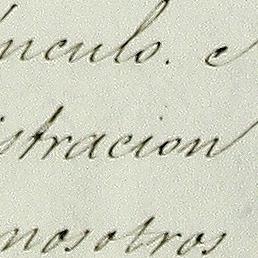 ínculo. e
istracion
nosotros